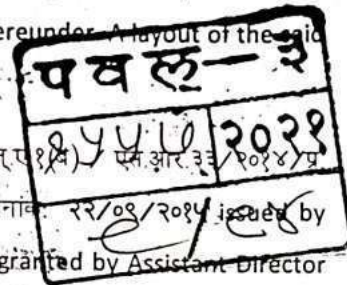 ereunder. A layout of the said
पवल-३
१५५५ २०२१
एस.आर.३३/२०१४/प्र
२२/०१/२०१५ issued by
granted by Assistant Director